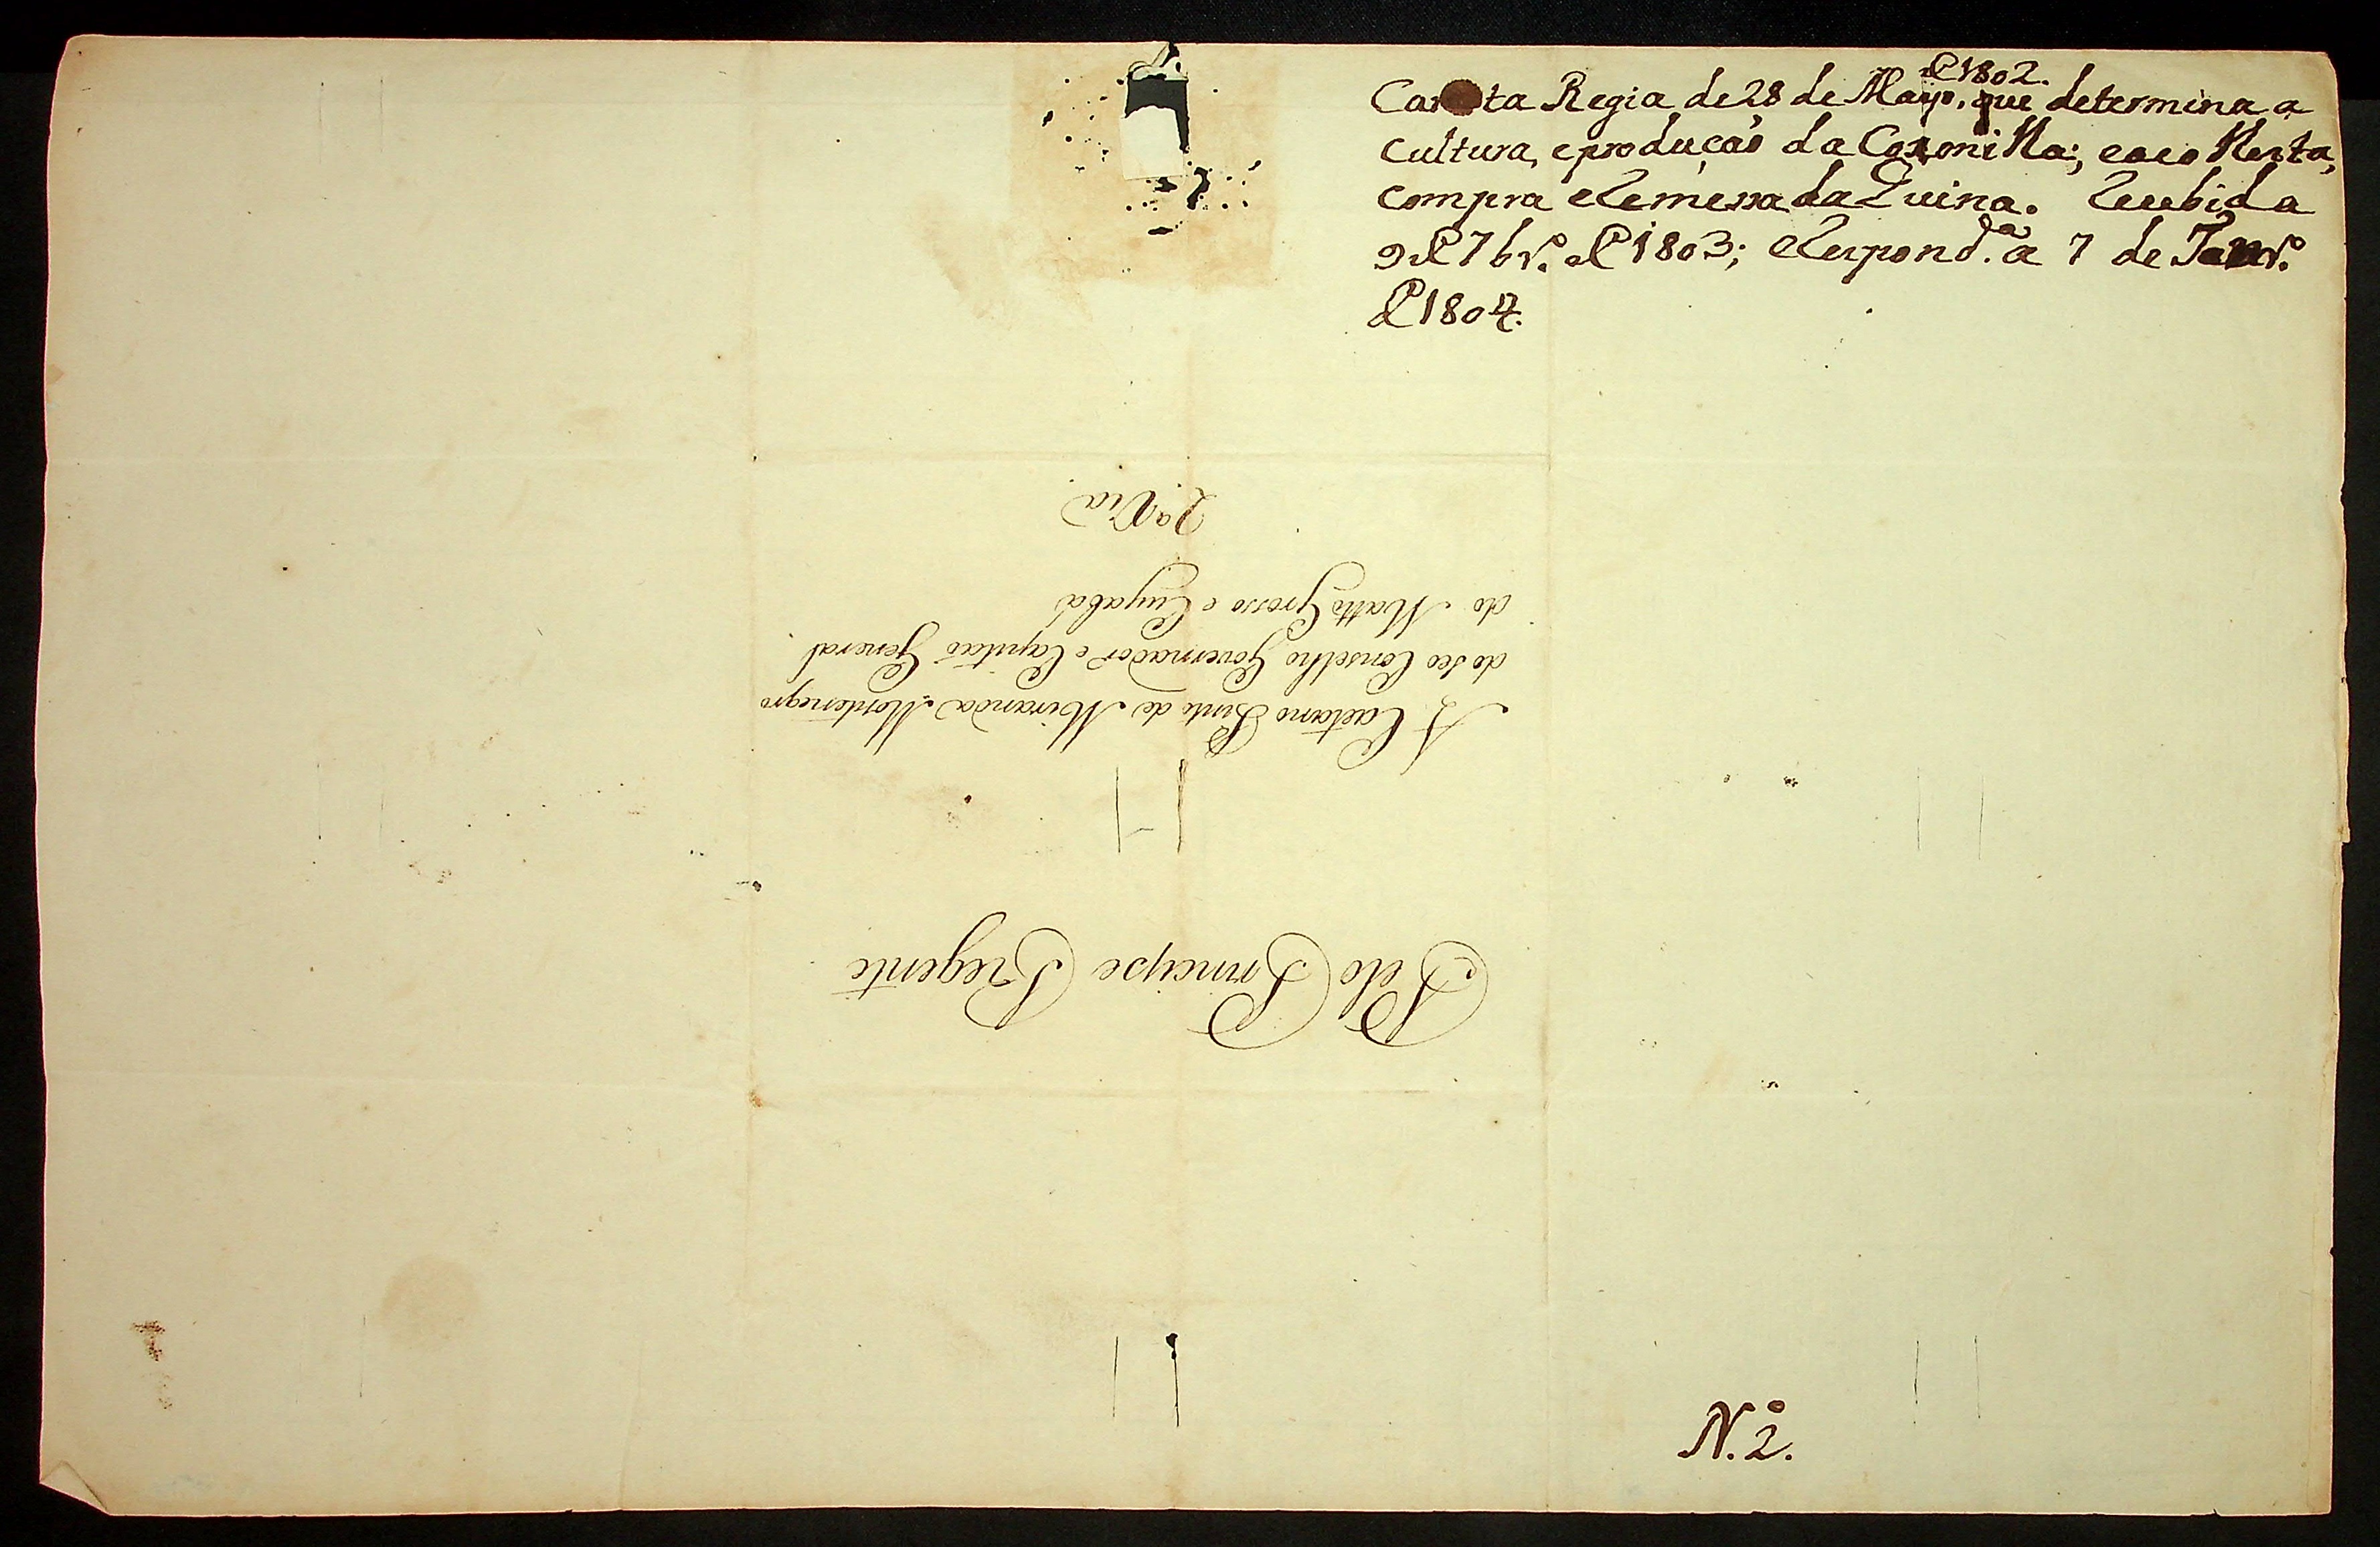 Carta Regia de 28 de Mayo. de 1802. que determina a
cultura, e produçaõ da Coxonilla;
compra e Remessa da Quina. Recebida
9 de 7br.º de 1803; e Respond.da a 7 de Janr.º
de 1804.
Pelo Principe Regente
A Caetano Pinto de Miranda Montenegro
do seo Conselho Governador e Capitaõ General
do Matto Grosso e Cuyabá
2.ª Via
N.º 2.